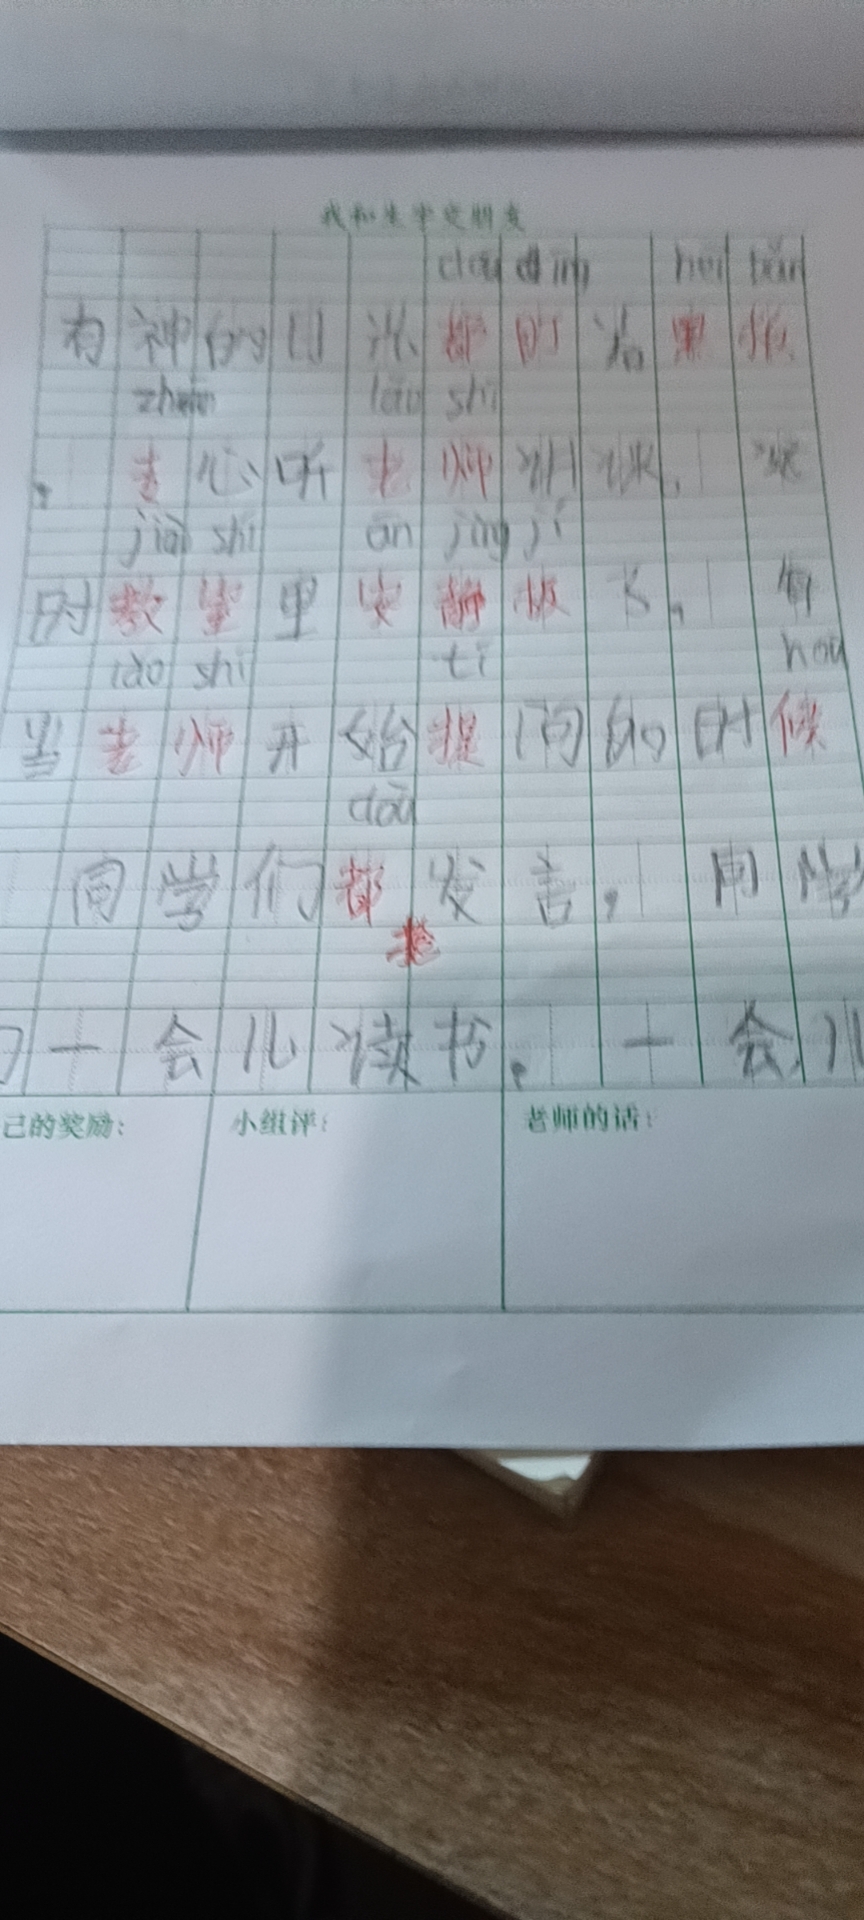 我和生字交朋友
dōu dīng hēi bǎn
有神的目光都盯着黑板
zhuān lǎo shī
，专心听老师讲课，
jiào shì ān jìng jí
时教室里安静极了，有
lǎo shī tí hou
当老师开始提问的时候
dōu
同学们都发言，同学
们一会儿读书，一会儿
己的奖励：
小组评：
老师的话：